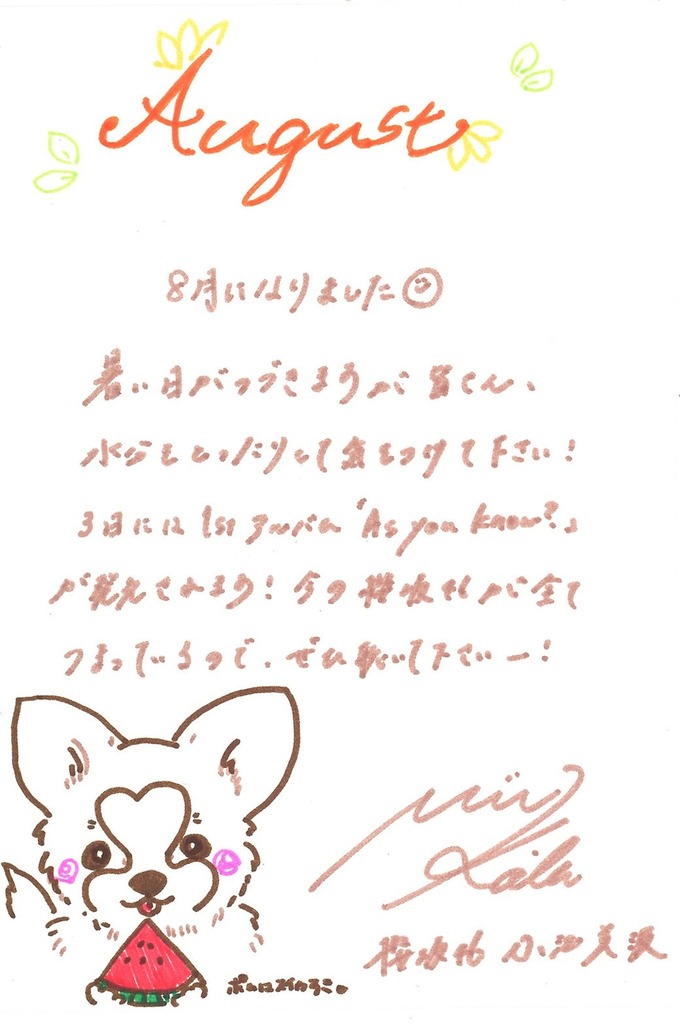 August
8月になりました
暑い日がつづきますが皆さん、
水分をとったりして気をつけて下さい!
3日には1stアルバム「As you know?」
が発売されます! 今の櫻坂46が全て
つまっているので、ぜひ聴いて下さいー!
櫻坂46 小池美波